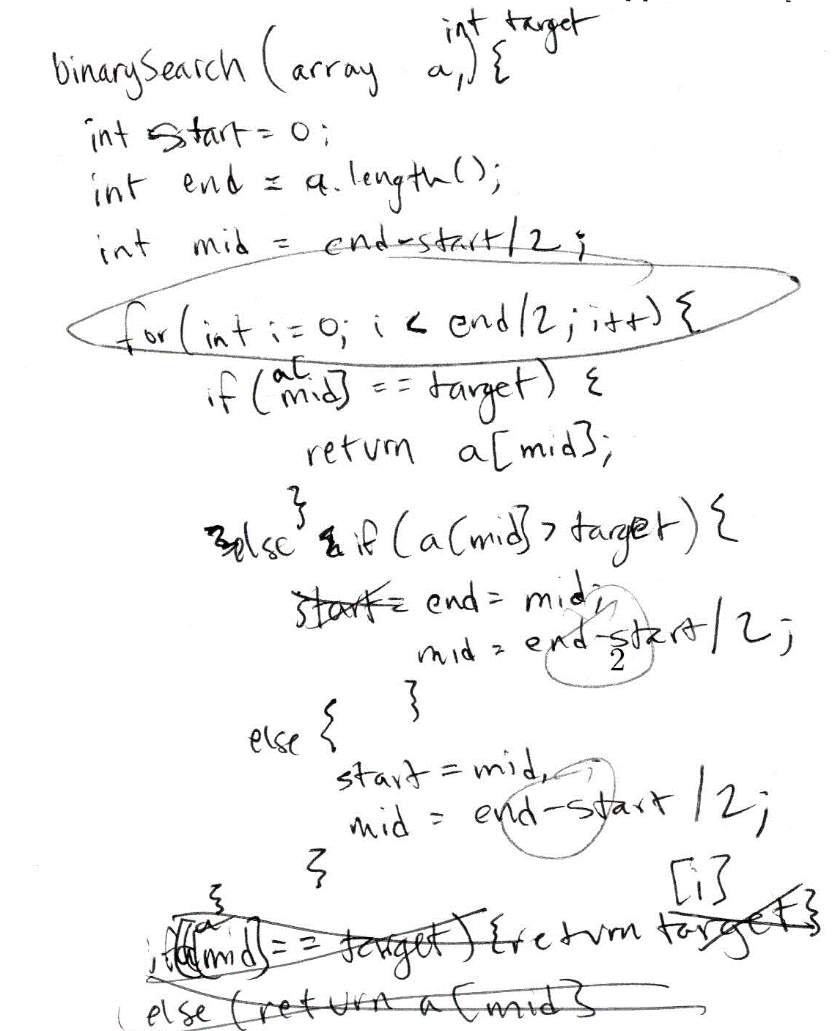 int target
binarySearch (array a,) {
int start = 0;
int end = a.length();
int mid = end-start/2;
for (int i=0; i < end/2; i++) {
a[
if (mid] == target) {
return a[mid];
}
else if (a[mid] > target) {
start = end = mid;
mid = end-start/2;
2
}
else {
start = mid,
mid = end-start/2;
}
}
[i]
if(a[mid]== target) {return target}
else (return a[mid]